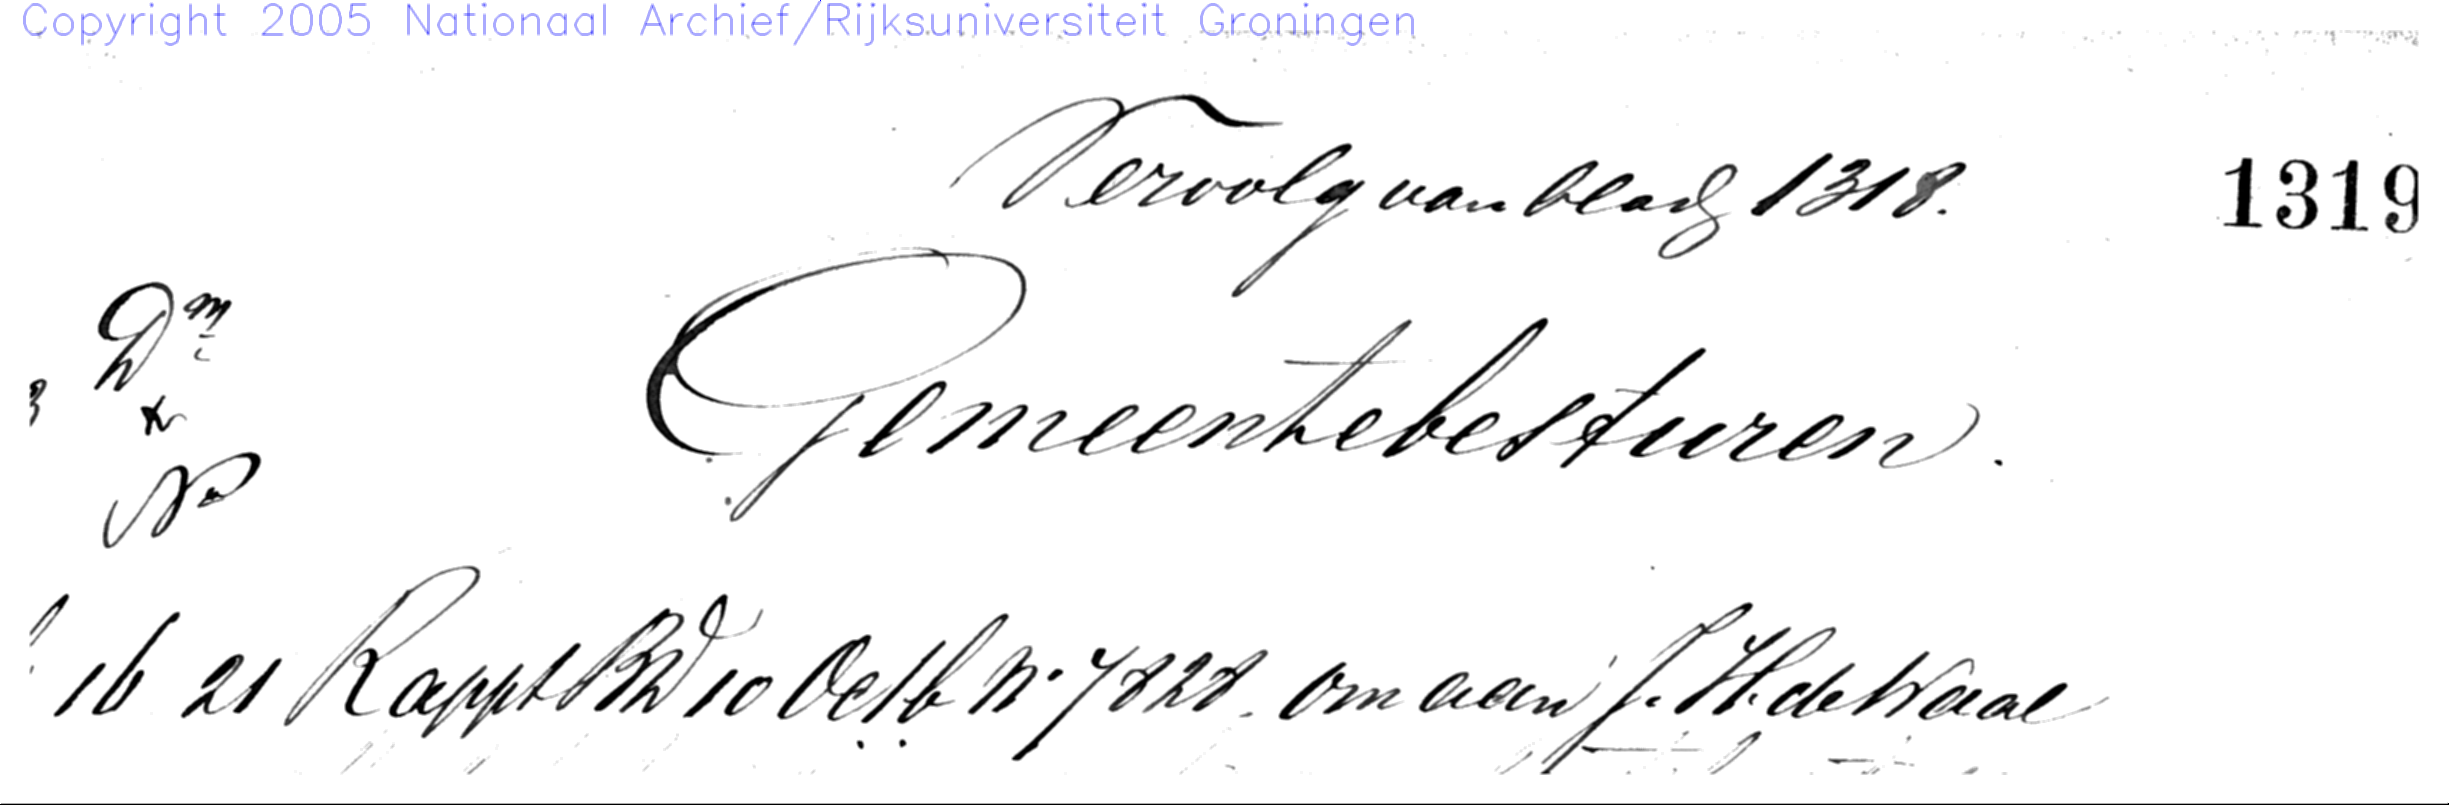 Copyright 2005 Nationaal Archief/Rijksuniversiteit Groningen
Vervolg van bladz 1318. 1319
Dm
Gemeentebesturen.
16 21 Rappt BW 10 Octb N. 7828. om aan J. H. de Waal